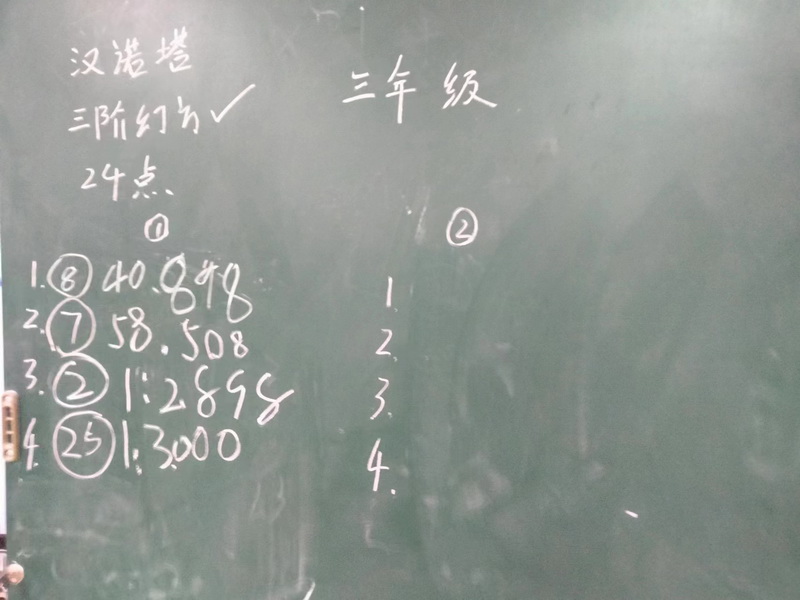 汉诺塔
三阶幻方✓
24点
三年级
①
1. ⑧ 40.898
2. ⑦ 58.508
3. ② 1:2898
4. ㉕ 1:3.000
②
1.
2.
3.
4.